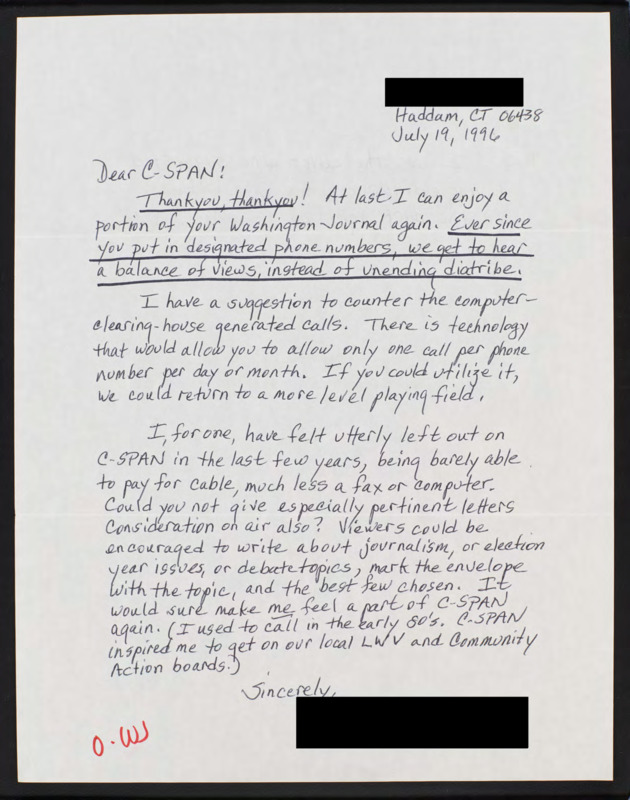 Haddam, CT 06438
July 19, 1996
Dear C-SPAN:
Thankyou, thankyou! At last I can enjoy a
portion of your Washington Journal again. Ever since
you put in designated phone numbers, we get to hear
a balance of views, instead of unending diatribe.
I have a suggestion to counter the computer-
clearing-house generated calls. There is technology
that would allow you to allow only one call per phone
number per day or month. If you could utilize it,
we could return to a more level playing field.
I, for one, have felt utterly left out on
C-SPAN in the last few years, being barely able
to pay for cable, much less a fax or computer.
Could you not give especially pertinent letters
consideration on air also? Viewers could be
encouraged to write about journalism, or election
year issues, or debate topics, mark the envelope
with the topic, and the best few chosen. It
would sure make me feel a part of C-SPAN
again. (I used to call in the early 80's. C-SPAN
inspired me to get on our local LWV and Community
Action boards.)
Sincerely,
O. WJ